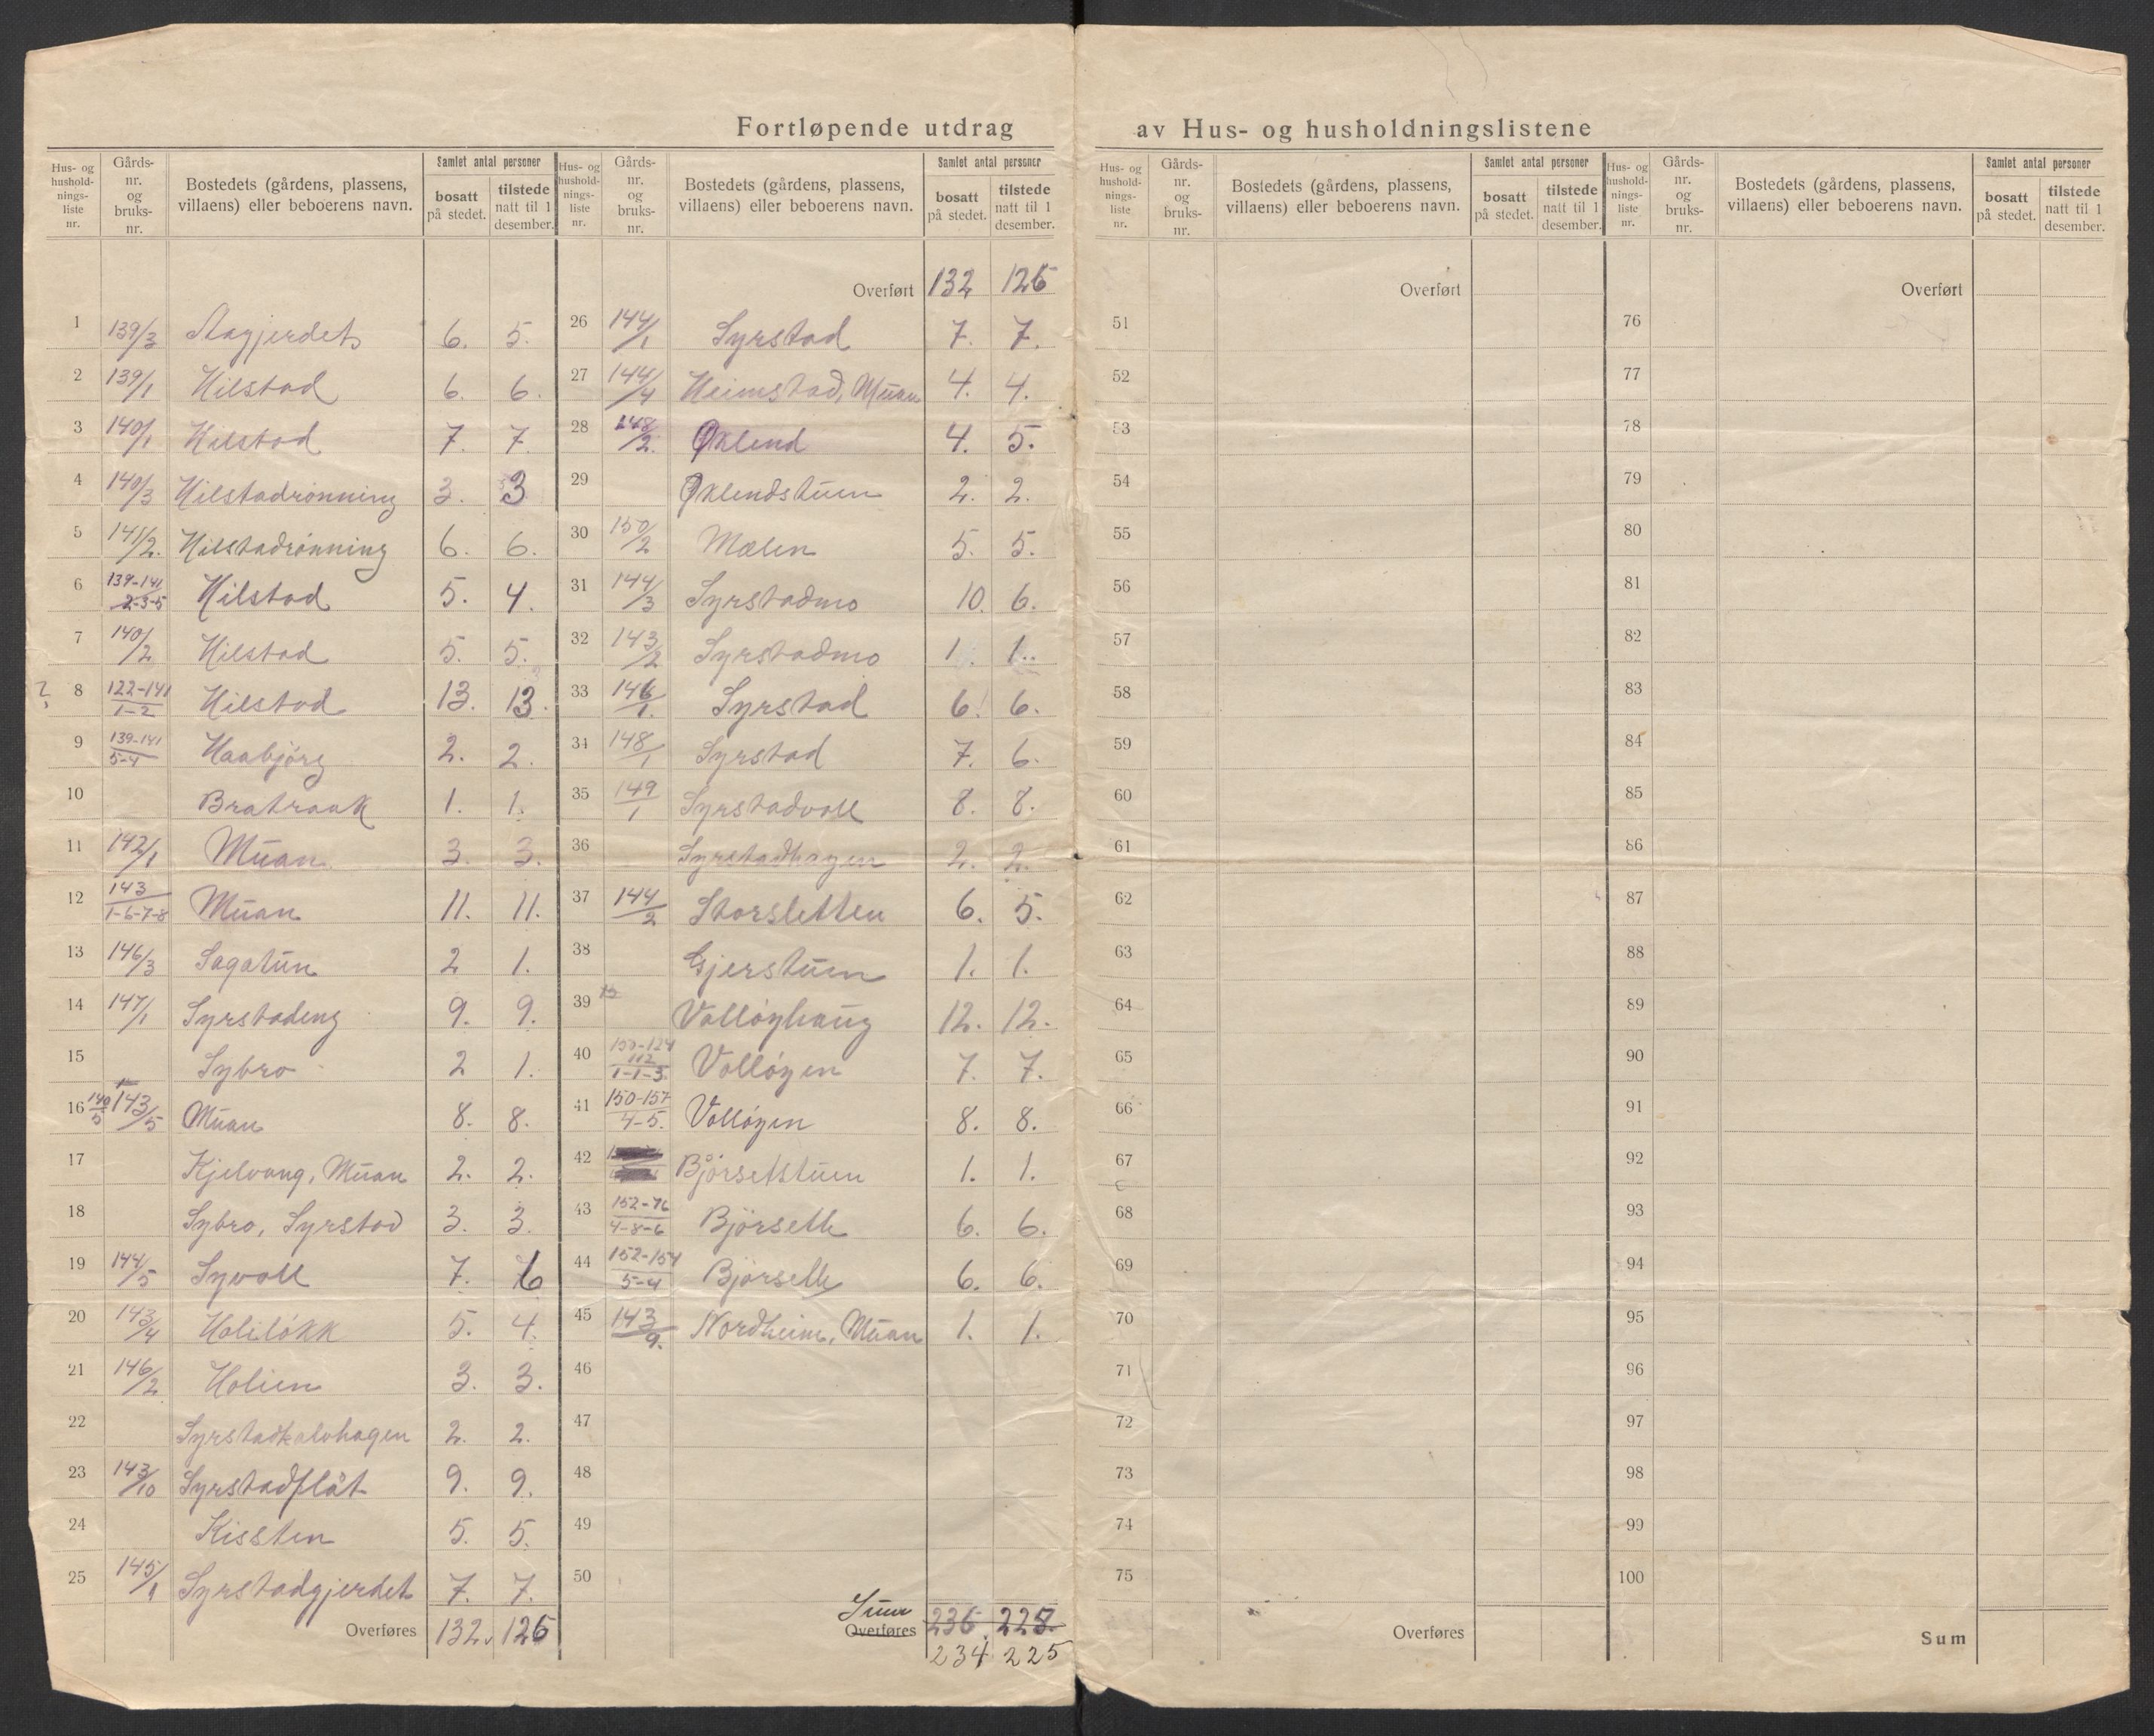 Fortløpende utdrag av Hus- og husholdningslistene
Hus- og husholdnings- liste nr. | Gårds- nr. og bruks- nr. | Bostedets (gårdens, plassens, villaens) eller beboerens navn. | Samlet antal personer | bosatt på stedet. | tilstede natt til 1 desember.
1 139/3 Aagjerdet 6. 5.
2 139/1 Hilstad 6. 6.
3 140/1 Hilstad 7. 7.
4 140/3 Hilstadrønning 3. 3
5 141/2. Hilstadrønning 6. 6.
6 139-141 2-3-5 Hilstad 5. 4.
7 140/2 Hilstad 5. 5.
? 8 122-141 1-2 Hilstad 13. 13.
9 139-141 5-4 Haabjørg 2. 2.
10 Bratraak 1. 1.
11 142/1 Muan 3. 3.
12 143 1-6-7-8 Muan 11. 11.
13 146/3 Sagatun 2 1.
14 147/1 Syrstadeng 9. 9.
15 Sybro 2 1.
16 140/5 143/5 Muan 8. 8.
17 Kjelvang, Muan 2. 2.
18 Sybro, Syrstad 3. 3.
19 144/5 Syvoll 7. 6
20 143/4 Holiløkk 5. 4.
21 146/2 Holien 3. 3.
22 Syrstadkalvhagen 2. 2.
23 143/10 Syrstadflåt 9. 9.
24 Kissten 5. 5.
25 145/1 Syrstadgjerdet 7. 7.
Overføres 132. 126
Hus- og husholdnings- liste nr. | Gårds- nr. og bruks- nr. | Bostedets (gårdens, plassens, villaens) eller beboerens navn. | Samlet antal personer | bosatt på stedet. | tilstede natt til 1 desember.
Overført 132 126
26 144/1 Syrstad 7. 7.
27 144/4 Heimstad, Muan 4. 4.
28 148/2. Øklend 4. 5.
29 Øklendstuen 2. 2.
30 150/2 Mælen 5. 5.
31 144/3 Syrstadmo 10. 6.
32 143/2 Syrstadmo 1. 1.
33 146/1. Syrstad 6. 6.
34 148/1 Syrstad 7. 6.
35 149/1 Syrstadvoll 8. 8.
36 Syrstadhagen 2. 2.
37 144/2 Storsletten 6. 5.
38 Gjerstuen 1. 1.
39 Volløyhaug 12. 12.
40 150-124 112 1-1-3. Volløyen 7. 7.
41 150-157 4-5. Volløyen 8. 8.
42 Bjørsetstuen 1. 1.
43 152-76 4-8-6 Bjørseth 6. 6.
44 152-154 5-4 Bjørseth 6. 6.
45 143/9. Nordheim, Muan 1. 1.
46
47
48
49
50
Sum
Overføres 236. 228.
234 225
Hus- og husholdnings- liste nr. | Gårds- nr. og bruks- nr. | Bostedets (gårdens, plassens, villaens) eller beboerens navn. | Samlet antal personer | bosatt på stedet. | tilstede natt til 1 desember.
Overført
51
52
53
54
55
56
57
58
59
60
61
62
63
64
65
66
67
68
69
70
71
72
73
74
75
Overføres
Hus- og husholdnings- liste nr. | Gårds- nr. og bruks- nr. | Bostedets (gårdens, plassens, villaens) eller beboerens navn. | Samlet antal personer | bosatt på stedet. | tilstede natt til 1 desember.
Overført
76
77
78
79
80
81
82
83
84
85
86
87
88
89
90
91
92
93
94
95
96
97
98
99
100
Sum